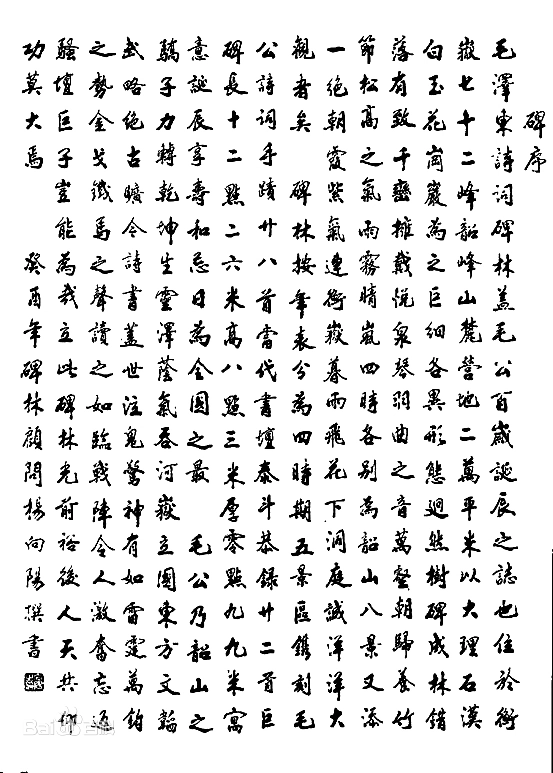 碑序
毛澤東詩詞碑林蓋毛公百歲誕辰之誌也位於衡
嶽七十二峰韶峰山麓營地二萬平米以大理石漢
白玉花崗巖為之巨細各異形態迥然樹碑成林錯
落有致千巒擁戴悅泉琴弱曲之音萬壑朝歸養竹
節松高之氣雨霧晴嵐四時各別為韶山八景又添
一絕朝霞紫氣連衡嶽暮雨飛花下洞庭誠洋洋大
觀者矣 碑林按年表分為四時期五景區鐫刻毛
公詩詞手蹟廿八首當代書壇泰斗恭錄廿二首巨
碑長十二點二六米高八點三米厚零點九九米寓
意誕辰享壽和忌日為全國之最 毛公乃韶山之
驕子力轉乾坤生靈澤蔭氣吞河嶽立國東方文韜
武略絕古曠今詩書蓋世泣鬼驚神有如雷霆萬鈞
之勢金戈鐵馬之聲讀之如臨戰陣令人激奮忘返
騷壇巨子豈能為我立此碑林光前裕後人天共仰
功莫大焉 癸酉年碑林顧問楊向陽撰書
Bai百科